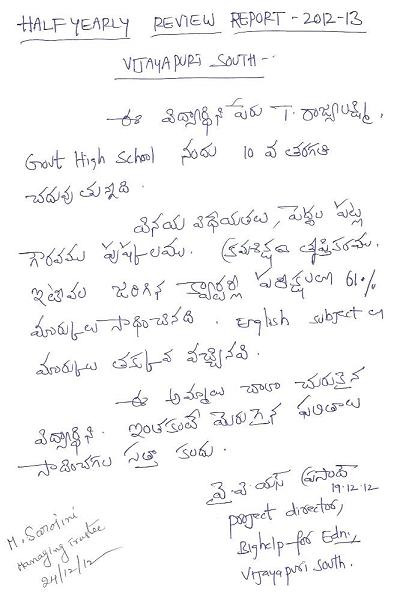 HALF YEARLY REVIEW REPORT - 2012-13
VIJAYAPURI SOUTH -
ఈ విద్యార్థిని పేరు T. రాజ్యలక్ష్మి,
Govt High School నందు 10 వ తరగతి
చదువు తున్నది.
వినయ విధేయతలు, పెద్దల పట్ల
గౌరవము పుష్కలము. క్రమశిక్షణ తృప్తికరము.
ఇటీవల జరిగిన క్వార్టర్లీ పరీక్షలలో 61%
మార్కులు సాధించినది. English subject లో
మార్కులు తక్కువ వచ్చినవి.
ఈ అమ్మాయి చాలా చురుకైన
విద్యార్థిని. ఇంతకంటే మెరుగైన ఫలితాలు
సాధించగల సత్తా కలదు.
వై. వి. యస్ ప్రసాద్
19.12.12
project director,
Bighelp for Edn.,
Vijayapuri South.
M. Sarojini
Managing Trustee
24/12/12